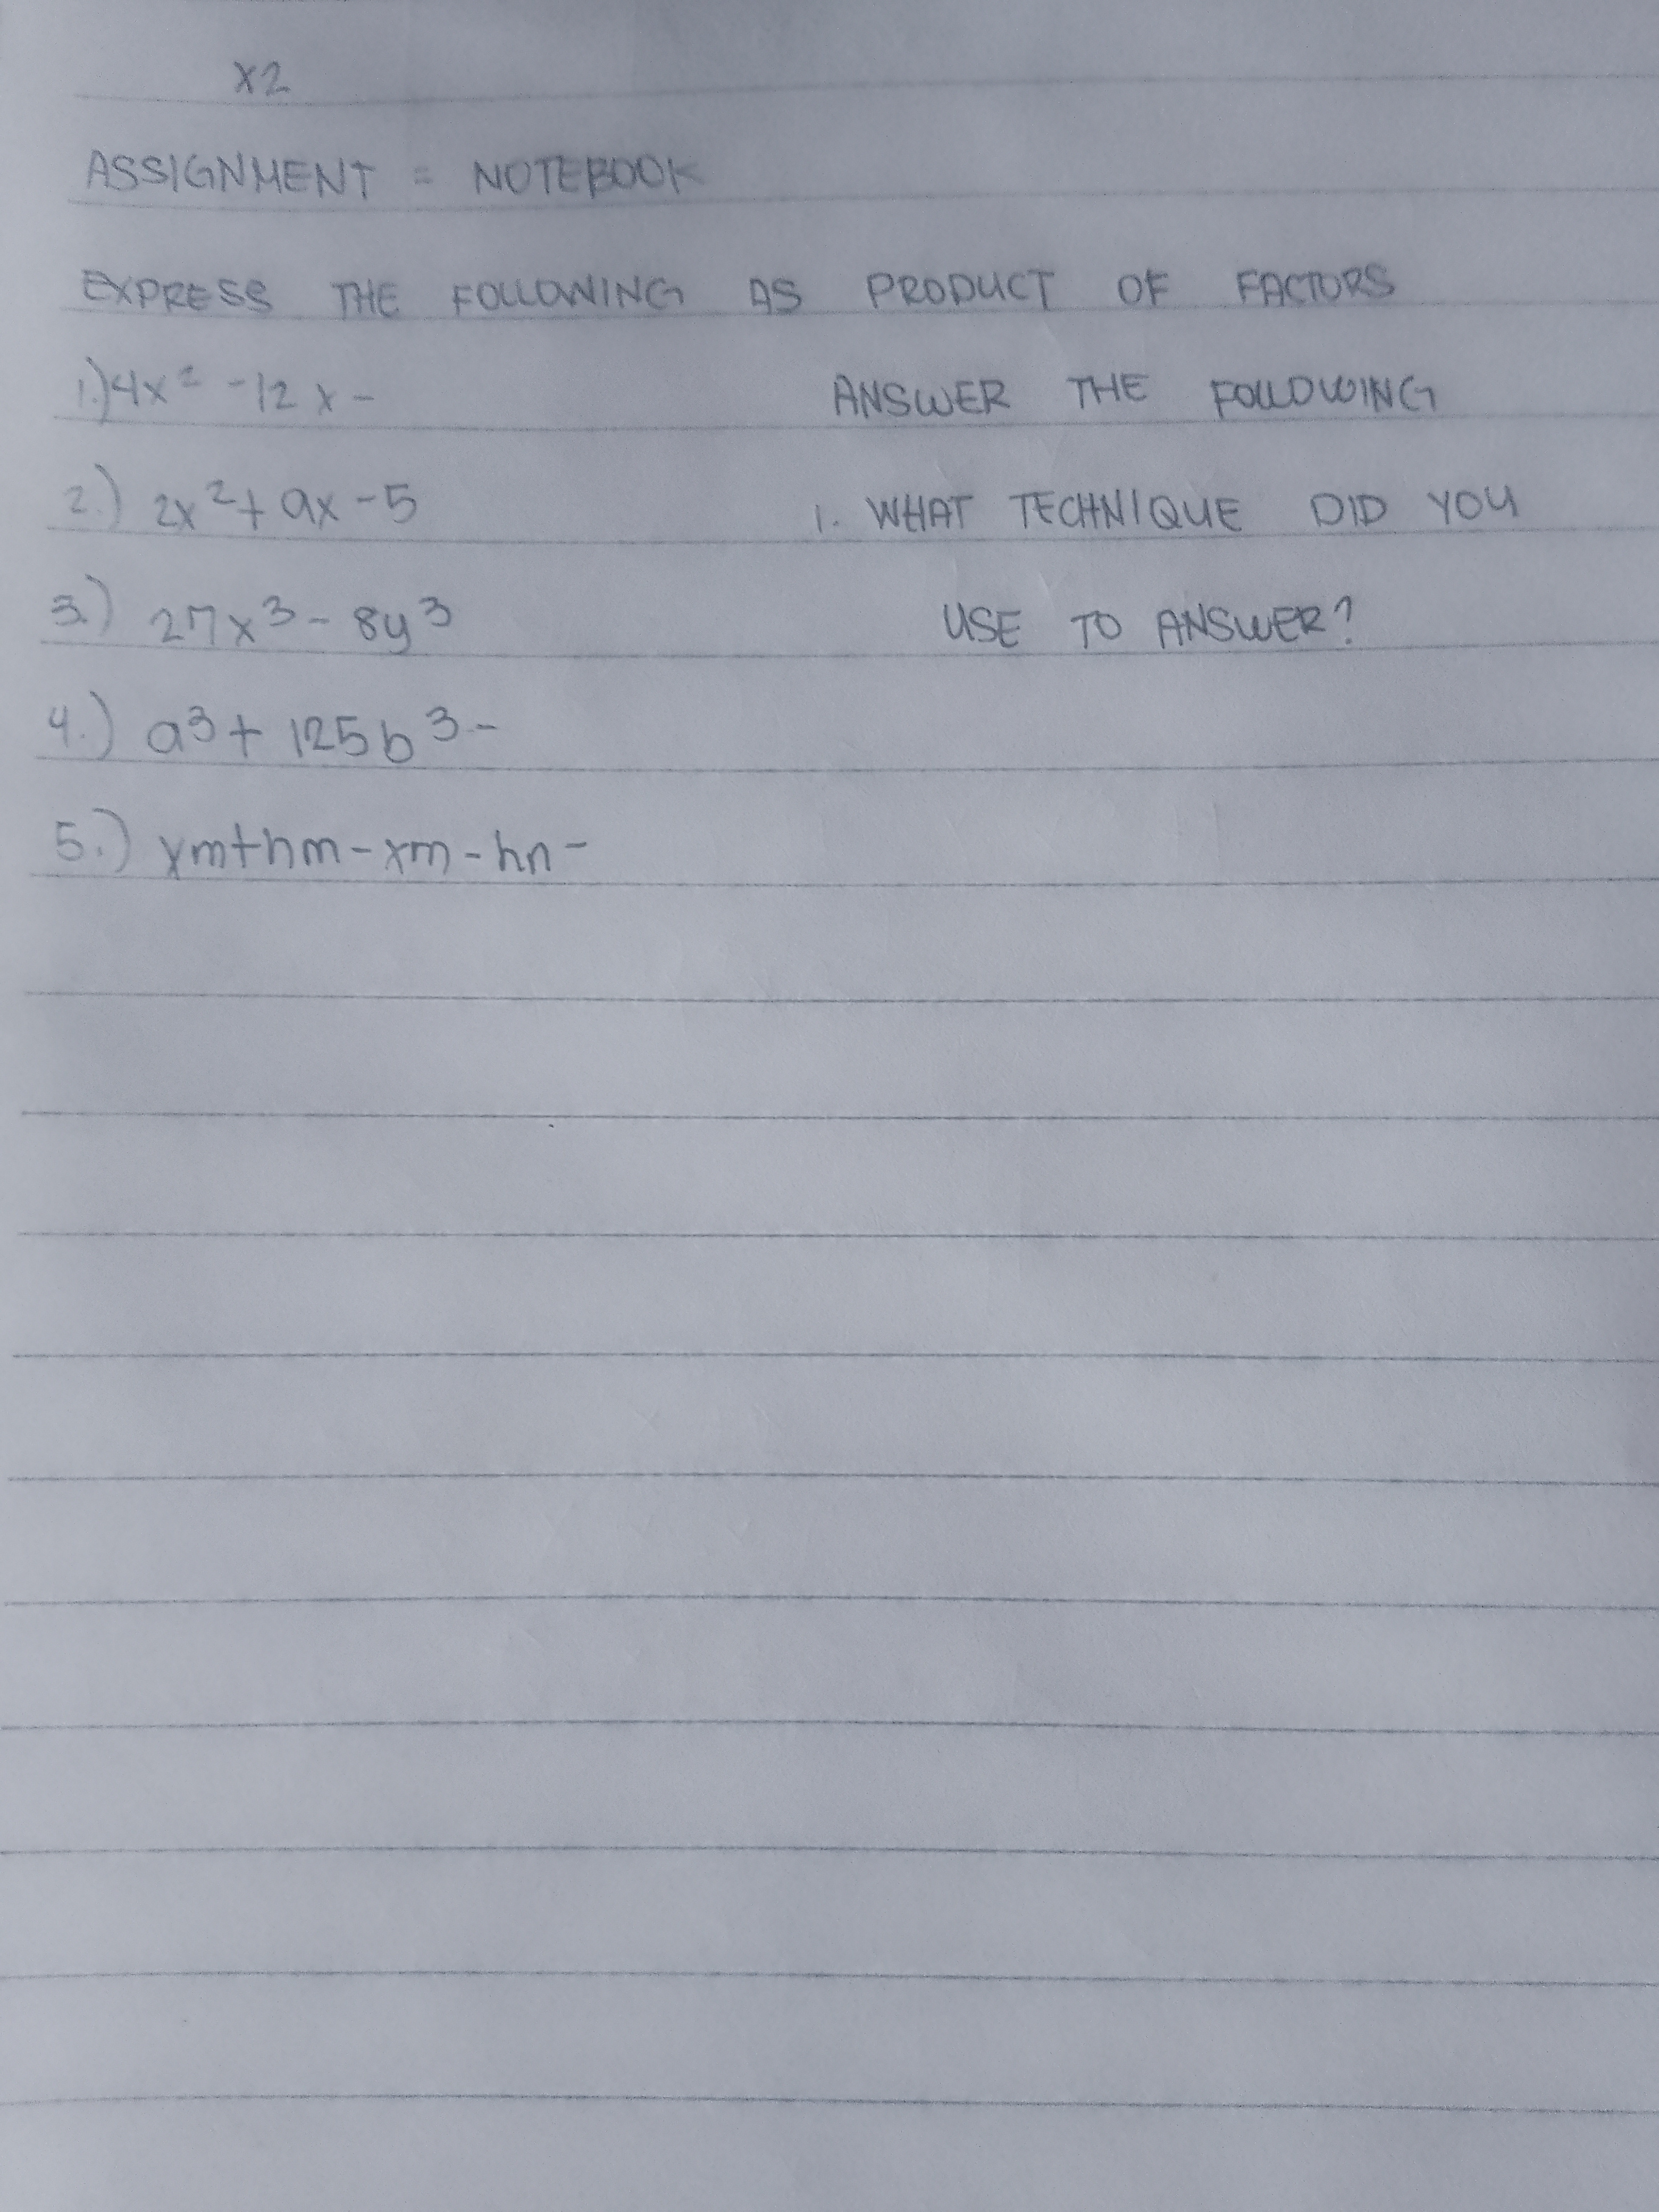 X2
ASSIGNMENT = NOTEBOOK
EXPRESS THE FOLLOWING AS PRODUCT OF FACTORS
1.) 4x² -12x -
2.) 2x² + 9x - 5
3.) 27x³ - 8y³
4.) a³ + 125b³ -
5.) xm+hm - xm - hn -
ANSWER THE FOLLOWING
1. WHAT TECHNIQUE DID YOU
USE TO ANSWER?